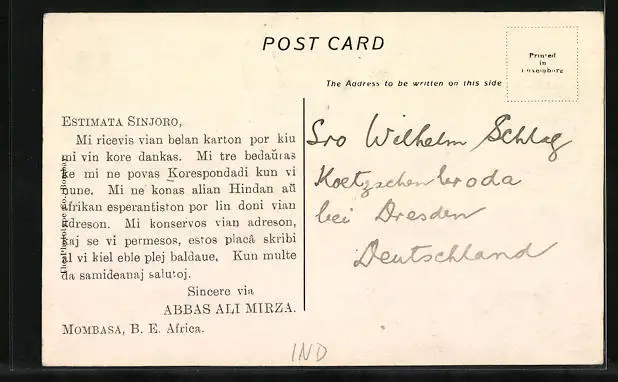 POST CARD
Printed
in
Luxemburg
The Address to be written on this side
ESTIMATA SINJORO,
Mi ricevis vian belan karton por kiu
mi vin kore dankas. Mi tre bedaŭras
ke mi ne povas Korespondadi kun vi
nune. Mi ne konas alian Hindan aŭ
Afrikan esperantiston por lin doni vian
adreson. Mi konservos vian adreson,
kaj se vi permesos, estos placâ skribi
al vi kiel eble plej baldaue. Kun multe
da samideanaj salutoj.
Sincere via
ABBAS ALI MIRZA.
MOMBASA, B. E. Africa.
Sro Wilhelm Schlag
Koetzschenbroda
bei Dresden
Deutschland
IND